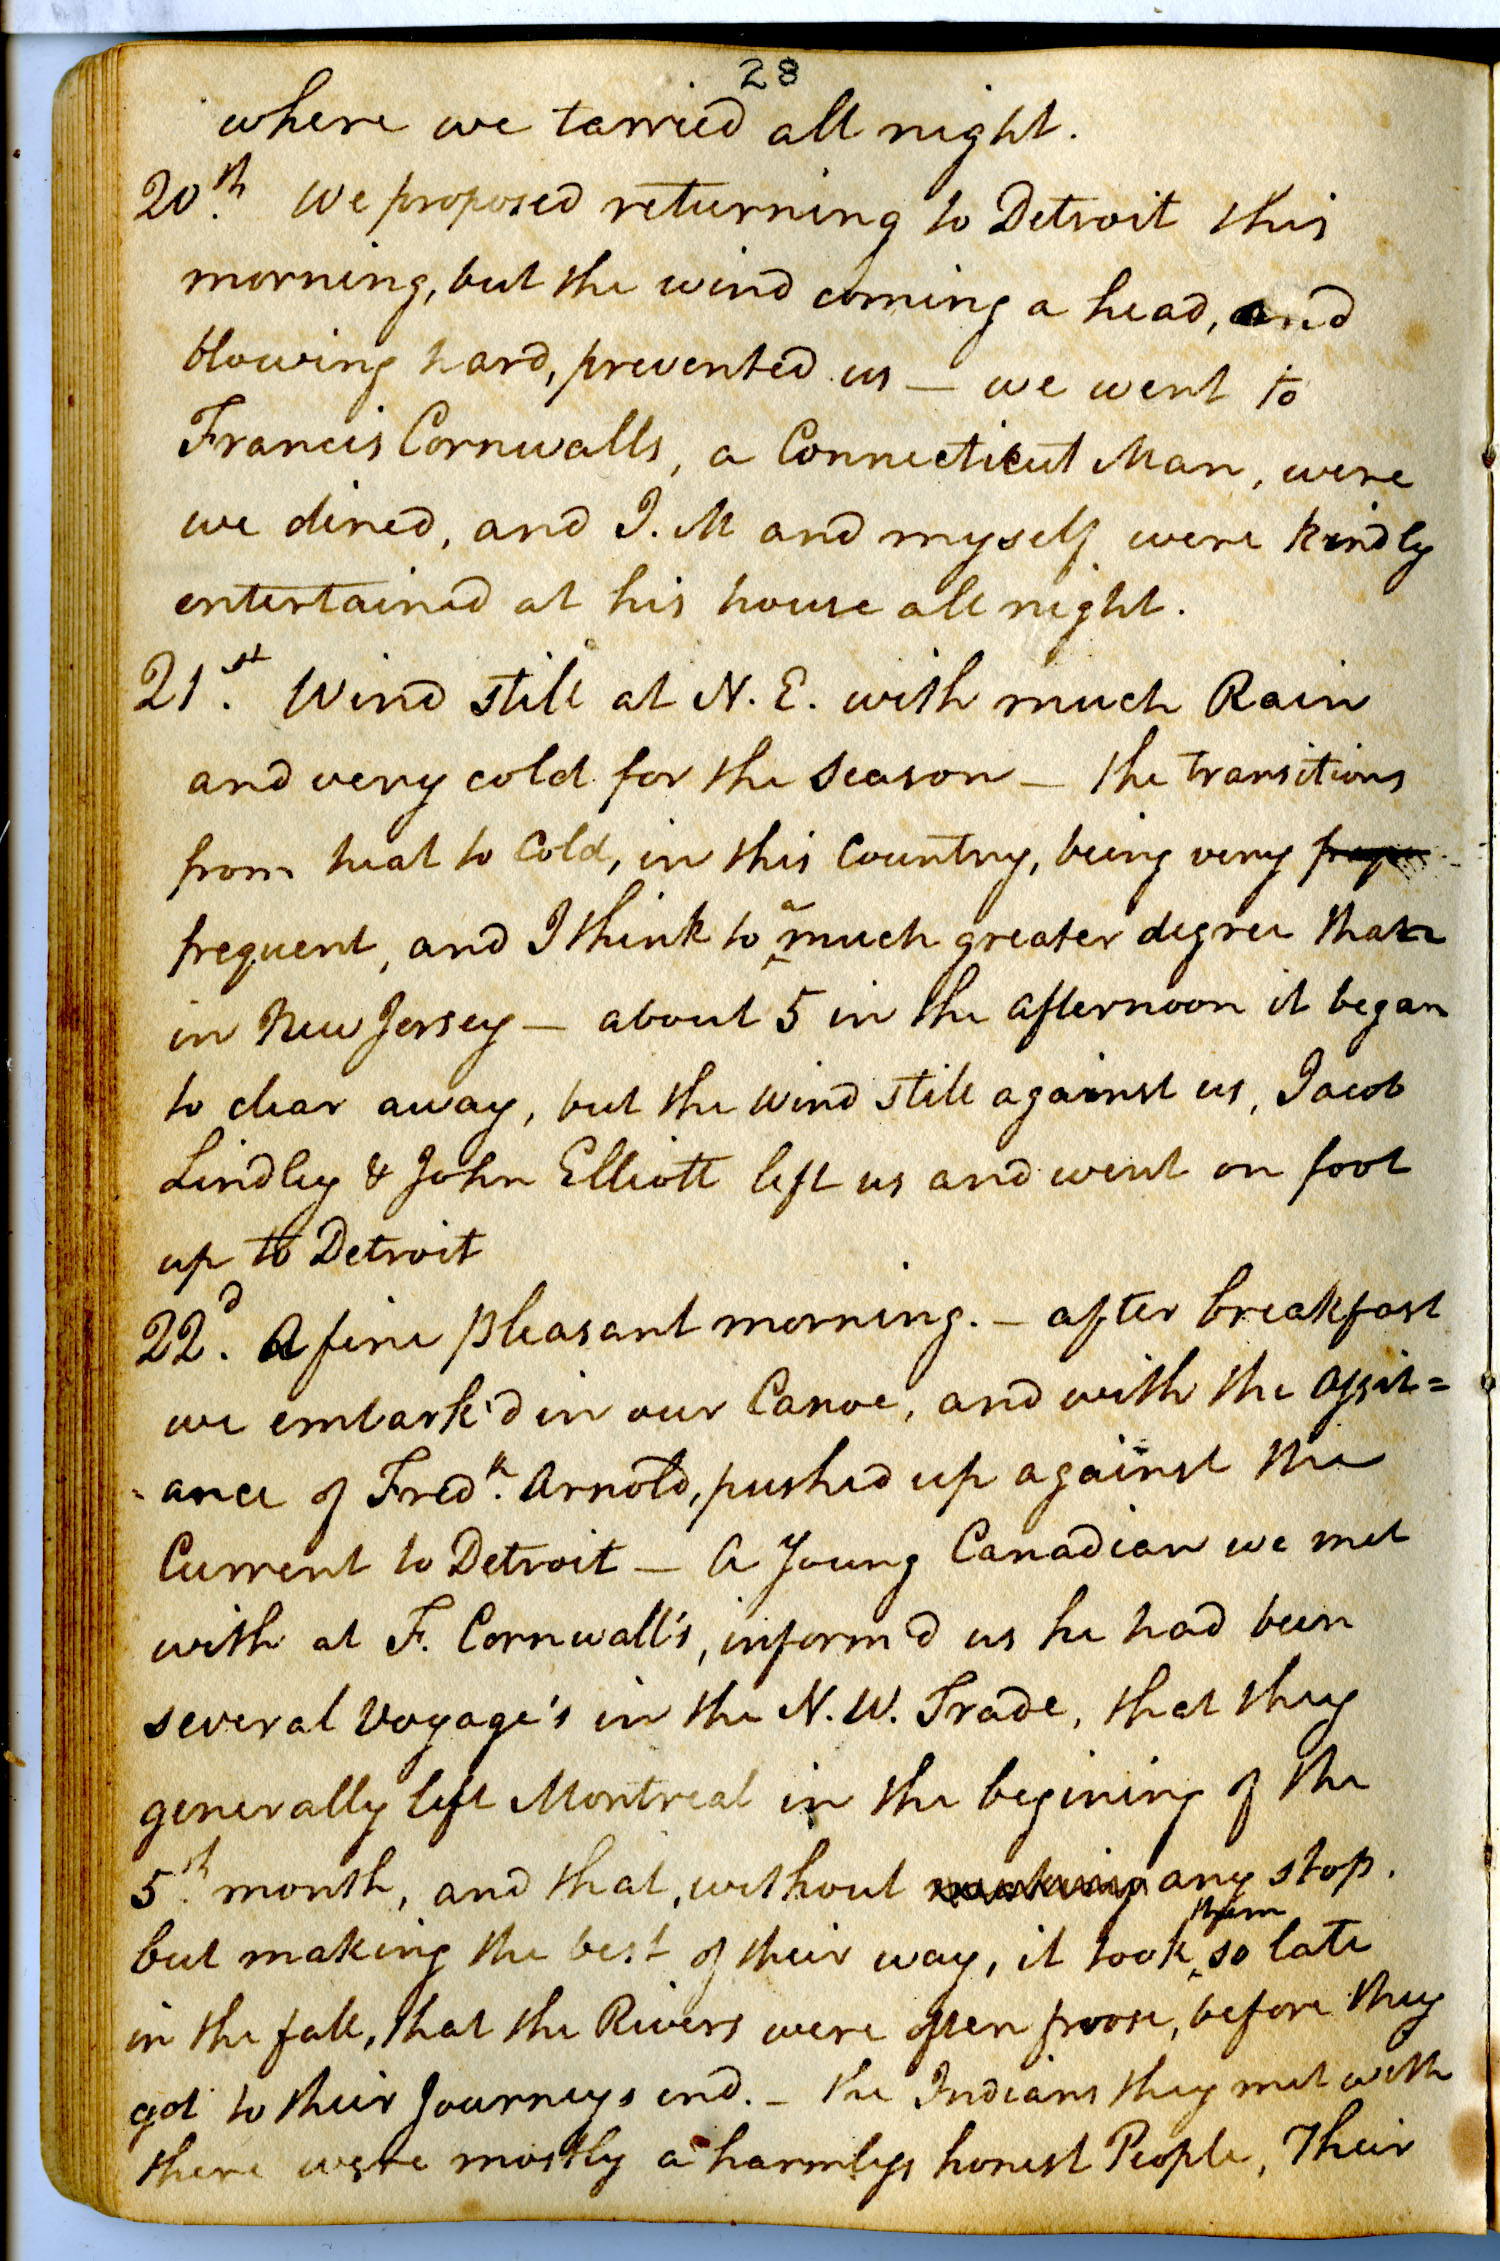 28
where we tarried all night.
20th. We proposed returning to Detroit this
morning, but the wind coming a head, and
blowing hard, prevented us — we went to
Francis Cornwalls, a Connecticut Man, were
we dined, and J. M and myself were kindly
entertained at his house all night.
21st. Wind still at N. E. with much Rain
and very cold for the Season — the transitions
from heat to Cold, in this Country, being very freque
frequent, and I think to a much greater degree than
in New Jersey — about 5 in the afternoon it began
to clear away, but the wind still against us, Jacob
Lindley & John Elliott left us and went on foot
up to Detroit
22d. A fine pleasant morning. — after breakfast
we embark'd in our Canoe, and with the assist=
-ance of Fredk. Arnold, pushed up against the
Current to Detroit — A Young Canadian we met
with at F. Cornwall's, inform'd us he had been
several Voyage's in the N. W. Trade, that they
generally left Montreal in the begining of the
5th. month, and that, without any stop.
but making the best of their way, it took them so late
in the fall, that the Rivers were often froose, before they
got to their Journeys end. — the Indians they met with
there were mostly a harmless honest People, Their